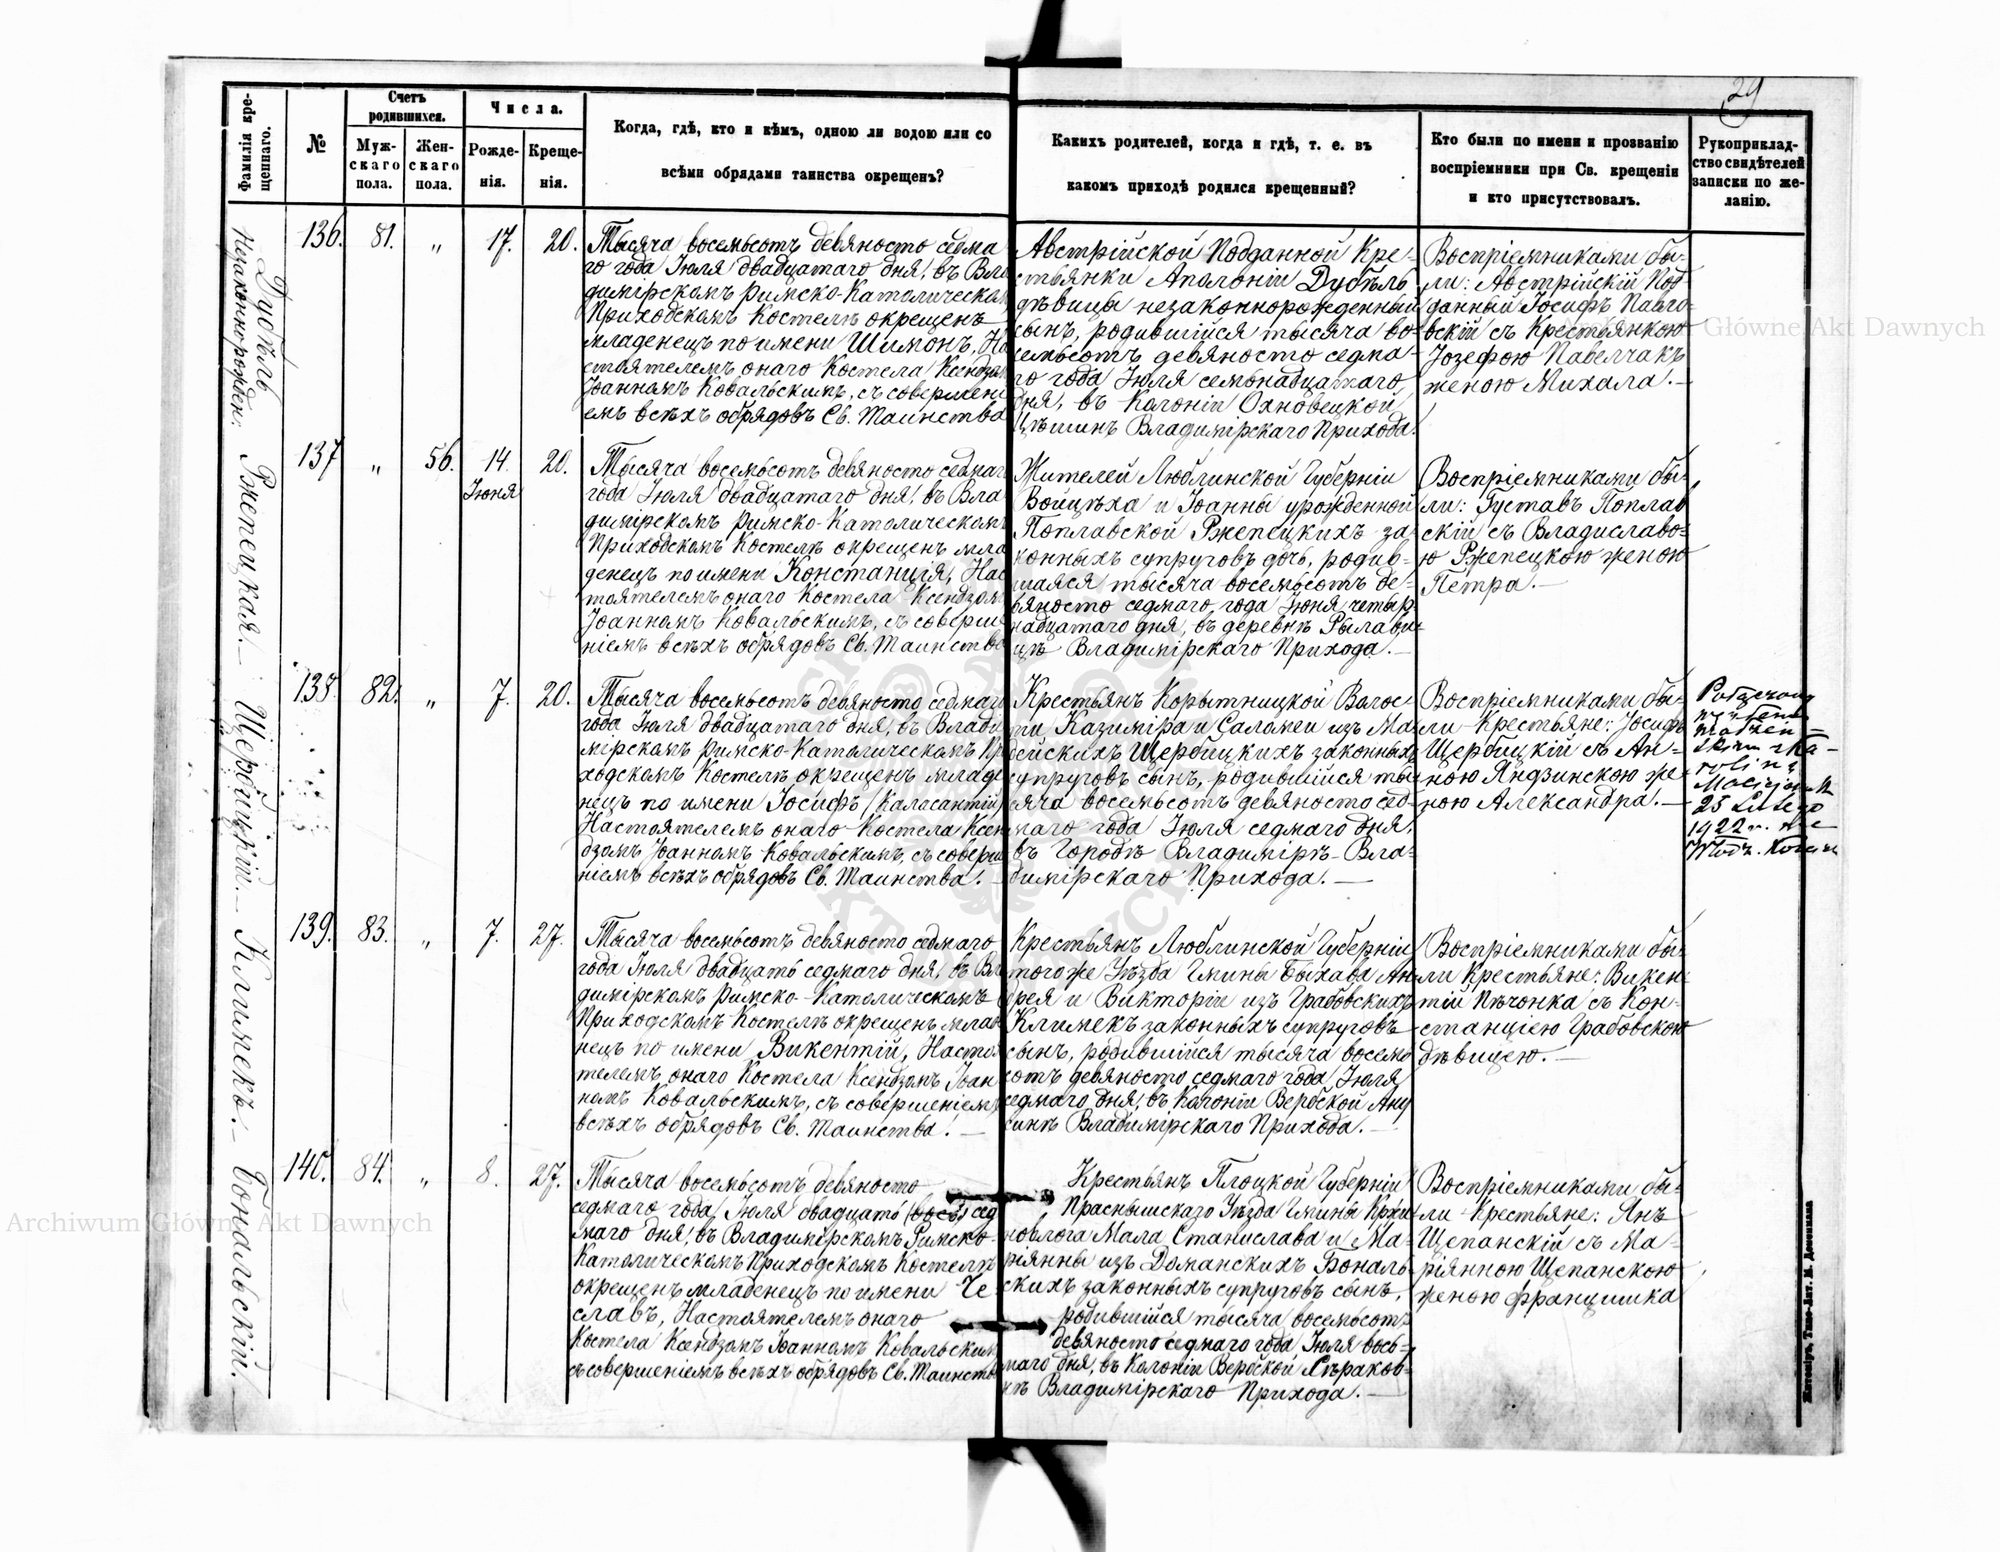 29
Фамилія кре-
щеннаго.
№
Счетъ
родившихся.
Муж-
скаго
пола.
Жен-
скаго
пола.
Числа.
Рожде-
нія.
Креще-
нія.
Когда, гдѣ, кто и кѣмъ, одною ли водою или со
всѣми обрядами таинства окрещенъ?
Какихъ родителей, когда и гдѣ, т. е. въ
какомъ приходѣ родился крещенный?
Кто были по имени и прозванію
воспріемники при Св. крещеніи
и кто присутствовалъ.
Рукоприклад-
ство свидѣтелей
записки по же-
ланію.
Дубѣль
Незаконнорожден:
136.
81.
"
17.
20.
Тысяча восемьсотъ девяносто седма
го года Іюля двадцатаго дня, въ Вла
димірскомъ Римско-Католическом
Приходскомъ Костелѣ окрещенъ
младенецъ по имени Шимонъ, На
стоятелемъ онаго Костела Ксендзом
Іоанномъ Ковальскимъ, съ совершені
емъ всѣхъ обрядовъ Св. Таинства
Австрійской Подданной Кре-
стьянки Аполоніи Дубѣль
дѣвицы незаконнорожденный
сынъ, родившійся тысяча во-
семьсотъ девяносто седма-
го года Іюля семьнадцатаго
дня, въ Колоніи Охновецкой
Цѣшинъ Владимірскаго Прихода.
Воспріемниками бы-
ли: Австрійскій Под
данный Іосифъ Павло-
вскій съ Крестьянкою
Іозефою Павелчакъ
женою Михала.—
Ржепецкая.—
137
"
56.
14.
Іюня
20.
Тысяча восемьсотъ девяносто седмаг
года Іюля двадцатаго дня, въ Вла
димірскомъ Римско-Католическомъ
Приходскомъ Костелѣ окрещенъ мла
денецъ по имени Констанція, Нас
тоятелемъ онаго Костела Ксендзом
Іоанномъ Ковальскимъ, съ соверше
ніемъ всѣхъ обрядовъ Св. Таинства
Жителей Люблинской Губерніи
Войцѣха и Іоанны урожденной
Поплавской Ржепецкихъ за-
конныхъ супруговъ дочь, родив-
шаяся тысяча восемьсотъ де-
вяносто седмаго года Іюня четыр
надцатаго дня, въ деревнѣ Рылави-
цѣ Владимірскаго Прихода.—
Воспріемниками бы-
ли: Густавъ Поплав
скій съ Владиславо-
ю Ржепецкою женою
Петра.—
Щербицкій.—
138.
82.
"
7.
20.
Тысяча восемьсотъ девяносто седмаго
года Іюля двадцатаго дня, въ Влади
мірскомъ Римско-Католическомъ При
ходскомъ Костелѣ окрещенъ младе
нецъ по имени Іосифъ /Каласантій/
Настоятелемъ онаго Костела Ксен
дзомъ Іоанномъ Ковальскимъ, съ соверше
ніемъ всѣхъ обрядовъ Св. Таинства.—
Крестьянъ Корытницкой Волос-
ти Казиміра и Саломеи изъ Ма
Щербицкихъ законныхъ
супруговъ сынъ, родившійся ты
сяча восемьсотъ девяносто сед-
маго года Іюля седмаго дня,
въ Городѣ Владимірѣ-Вла-
димірскаго Прихода.—
Воспріемниками бы-
ли Крестьяне: Іосифъ
Щербицкій съ Ан-
ною Яндзинскою же
ною Александра.—
małżeń-
skim z Ka-
roliną
25 Lutego
1922 r. we
Włodz.
Климекъ.—
139.
83.
"
7.
27.
Тысяча восемьсотъ девяносто седмаго
года Іюля двадцать седмаго дня, въ Вл
димірскомъ Римско-Католическомъ
Приходскомъ Костелѣ окрещенъ млад
нецъ по имени Викентій, Настоя
телемъ онаго Костела Ксендзомъ Іоан
номъ Ковальскимъ, съ совершеніемъ
всѣхъ обрядовъ Св. Таинства.—
Крестьянъ Люблинской Губерніи
тогоже Уѣзда Гмины Быхава Ан
дрея и Викторіи изъ Грабовскихъ
Климекъ законныхъ супруговъ
сынъ, родившійся тысяча восемь
сотъ девяносто седмаго года Іюля
седмаго дня, въ Колоніи Вербской Ану
синѣ Владимірскаго Прихода.—
Воспріемниками бы-
ли Крестьяне: Викен-
тій Пѣчонка съ Кон-
станціею Грабовскою
дѣвицею.—
Бональскій.—
140.
84.
"
8.
27.
Тысяча восемьсотъ девяносто
седмаго года Іюля двадцать (вось) сед
маго дня, въ Владимірскомъ Римско-
Католическомъ Приходскомъ Костелѣ
окрещенъ младенецъ по имени Че-
славъ, Настоятелемъ онаго
Костела Ксендзомъ Іоанномъ Ковальским
съ совершеніемъ всѣхъ обрядовъ Св. Таинства
Крестьянъ Плоцкой Губерніи
Праснышскаго Уѣзда Гмины Кржи
новлога Мала Станислава и Ма-
ріянны изъ Доманскихъ Бональ-
скихъ законныхъ супруговъ сынъ,
родившійся тысяча восемьсотъ
девяносто седмаго года Іюля вось-
маго дня, въ Колоніи Вербской Сѣраков-
кѣ Владимірскаго Прихода.—
Воспріемниками бы-
ли Крестьяне: Янъ
Щепанскій съ Ма-
ріянною Щепанскою
женою Францишка
Житоміръ, Типо-Лит. М. Дененмана
Główne Akt Dawnych
Archiwum Główne Akt Dawnych